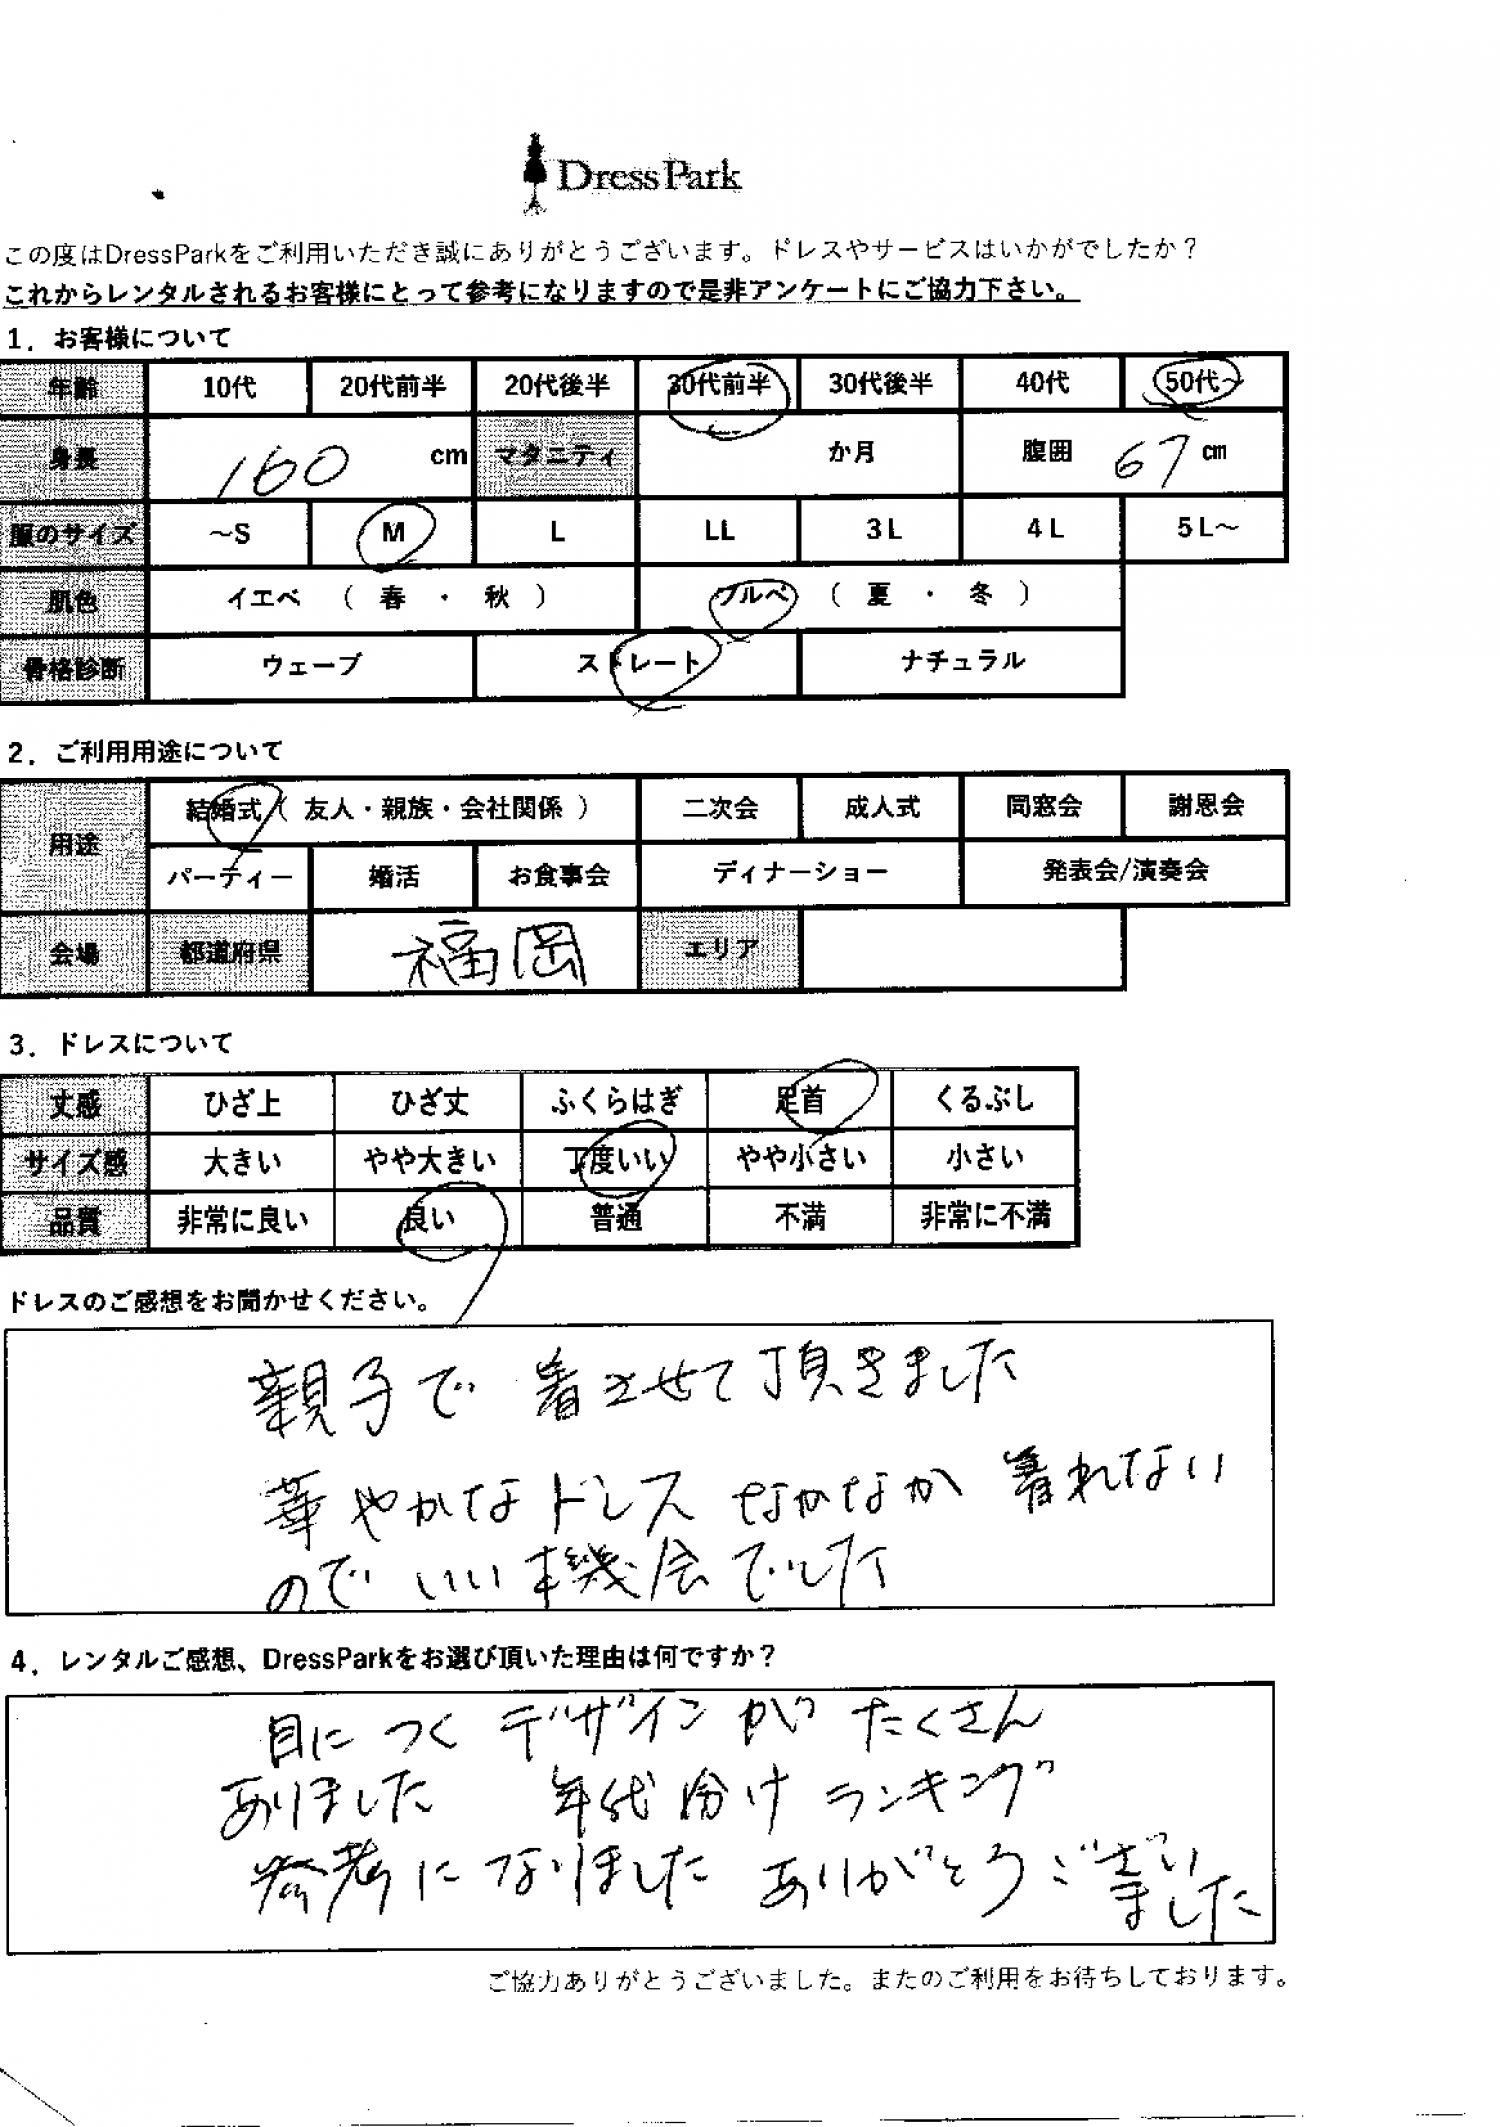 DressPark
この度はDressParkをご利用いただき誠にありがとうございます。ドレスやサービスはいかがでしたか？
これからレンタルされるお客様にとって参考になりますので是非アンケートにご協力下さい。
1．お客様について
年齢 10代 20代前半 20代後半 30代前半 30代後半 40代 50代～
身長 160 cm マタニティ か月 腹囲 67 cm
服のサイズ ～S M L LL 3L 4L 5L～
肌色 イエベ （ 春 ・ 秋 ） ブルベ （ 夏 ・ 冬 ）
骨格診断 ウェーブ ストレート ナチュラル
2．ご利用用途について
用途 結婚式（ 友人・親族・会社関係 ） 二次会 成人式 同窓会 謝恩会
パーティー 婚活 お食事会 ディナーショー 発表会/演奏会
会場 都道府県 福岡 エリア
3．ドレスについて
丈感 ひざ上 ひざ丈 ふくらはぎ 足首 くるぶし
サイズ感 大きい やや大きい 丁度いい やや小さい 小さい
品質 非常に良い 良い 普通 不満 非常に不満
ドレスのご感想をお聞かせください。
親子で 着させて頂きました
華やかなドレス なかなか 着れない
ので いい機会でした
4．レンタルご感想、DressParkをお選び頂いた理由は何ですか？
目につく デザインが たくさん
ありました 年代分け ランキング
参考になりました ありがとうござい
ました
ご協力ありがとうございました。またのご利用をお待ちしております。